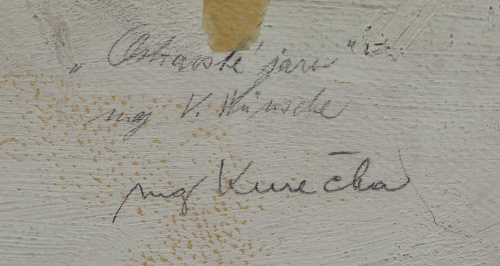 „Ostravské jaro"
mg V. Wünsche
mg Kurečka